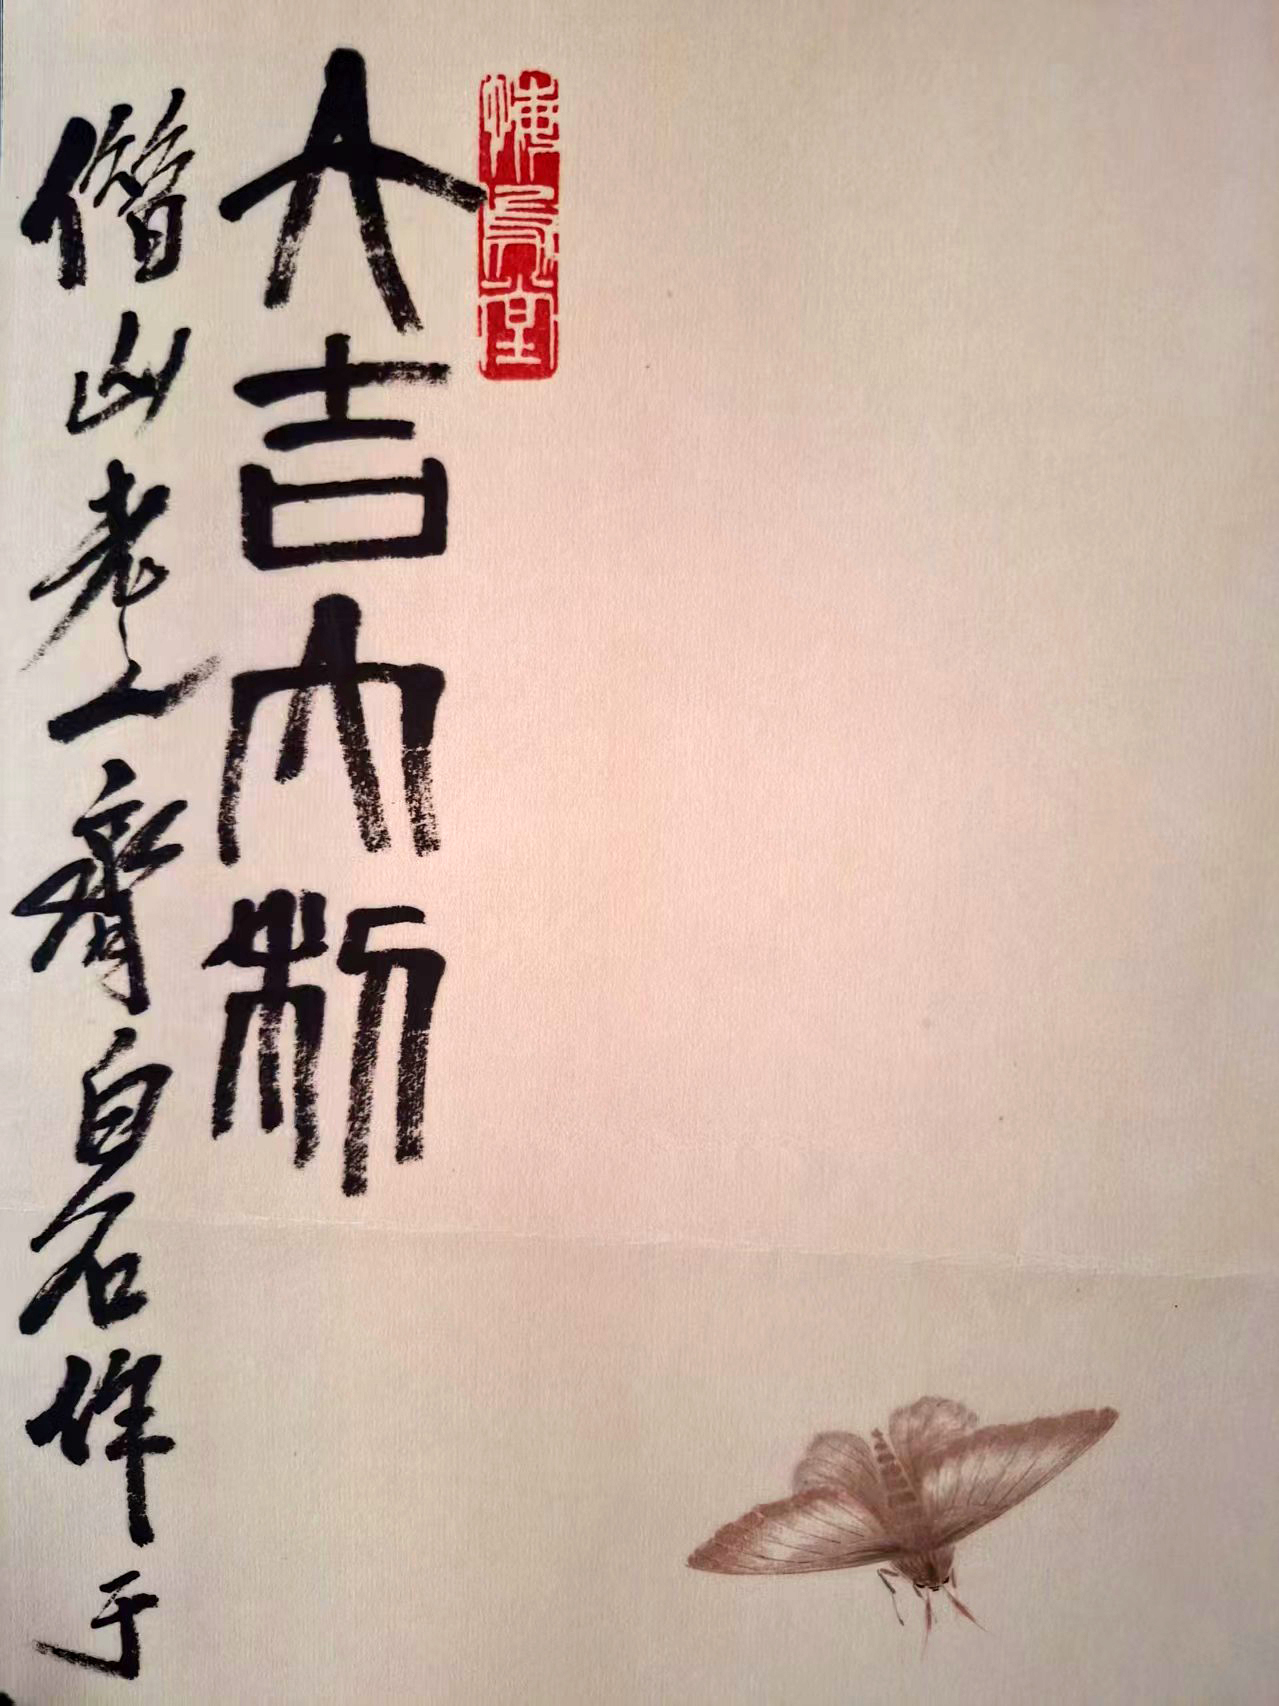 悔烏堂
大吉大利
借山老人齊白石作于